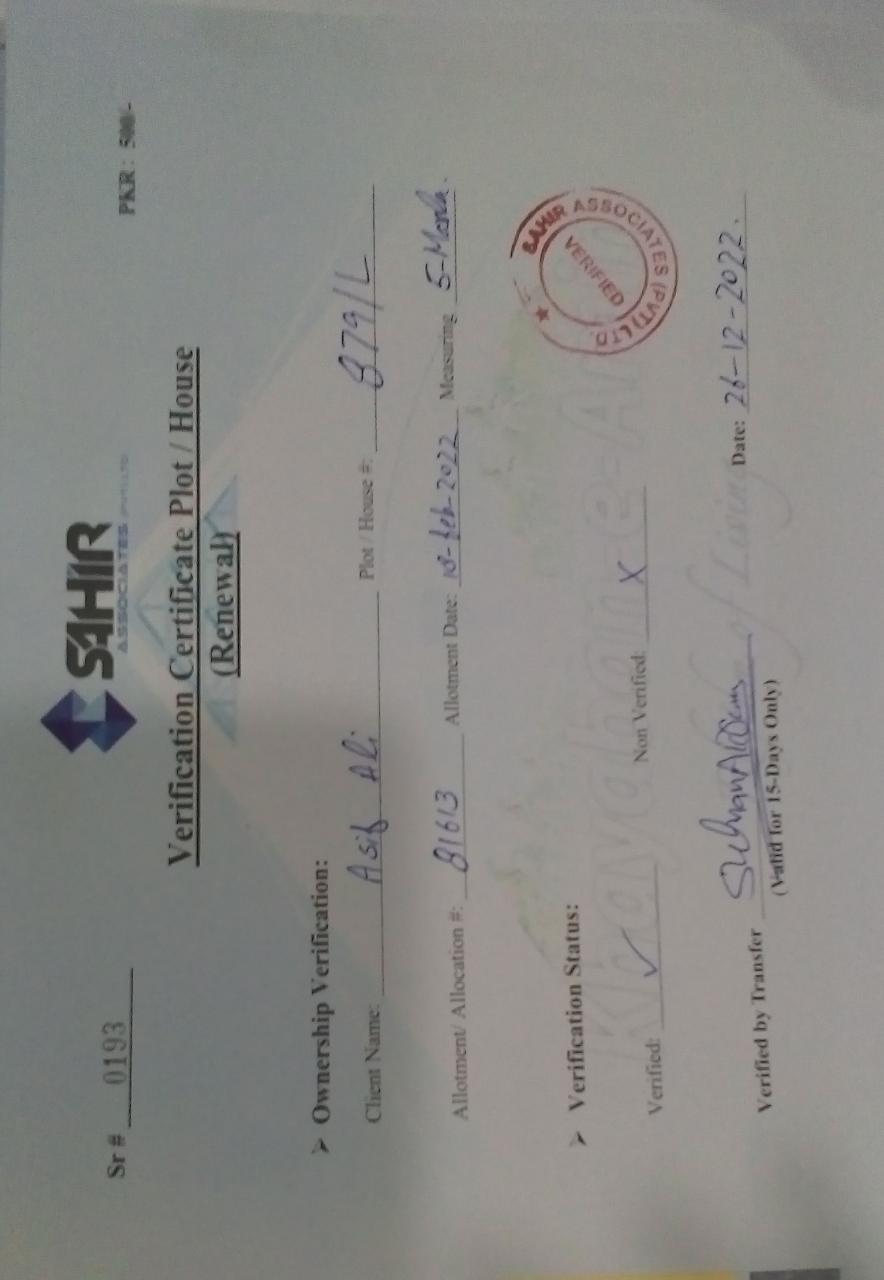 SAHIR
ASSOCIATES (PVT) LTD
Sr # 0193
PKR : 500/-
Verification Certificate Plot / House
(Renewal)
➤ Ownership Verification:
Client Name: Asif Ali Plot / House #: 879/L
Allotment/ Allocation #: 81613 Allotment Date: 10-feb-2022 Measuring 5-Marla.
➤ Verification Status:
Verified: ✓ Non Verified: X
SAHIR ASSOCIATES (PVT) LTD.
VERIFIED
Verified by Transfer Date: 26-12-2022.
(Valid for 15-Days Only)